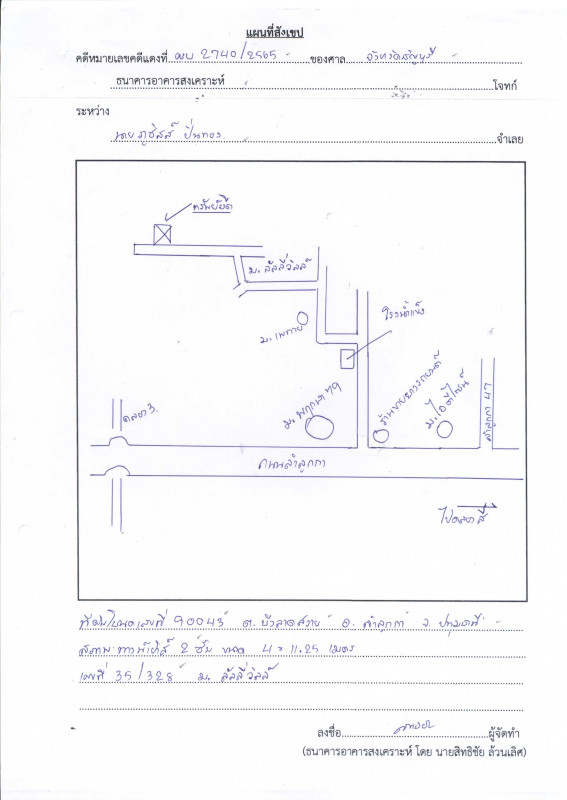 แผนที่สังเขป
คดีหมายเลขคดีแดงที่ ผบ 2740/2565 ของศาล จังหวัดธัญบุรี
ธนาคารอาคารสงเคราะห์ โจทก์
ระหว่าง
นาย ปิ่นทอง จำเลย
ทรัพย์ยึด
ม. ลัลลี่วิลล์
โรงน้ำแข็ง
ม. พฤกษา 79
ร้านขายยางรถยนต์
ม. ไอดีไซน์
ลำลูกกา 47
คลอง 3
ถนนลำลูกกา
ไปคลองสี่
ที่ดินโฉนดเลขที่ 90043 ต. บึงลาดสวาย อ. ลำลูกกา จ. ปทุมธานี
สภาพ ทาวน์เฮ้าส์ 2 ชั้น ขนาด 4 × 11.25 เมตร
เลขที่ 35/328 ม. ลัลลี่วิลล์
ลงชื่อ ผู้จัดทำ
(ธนาคารอาคารสงเคราะห์ โดย นายสิทธิชัย ล้วนเลิศ)